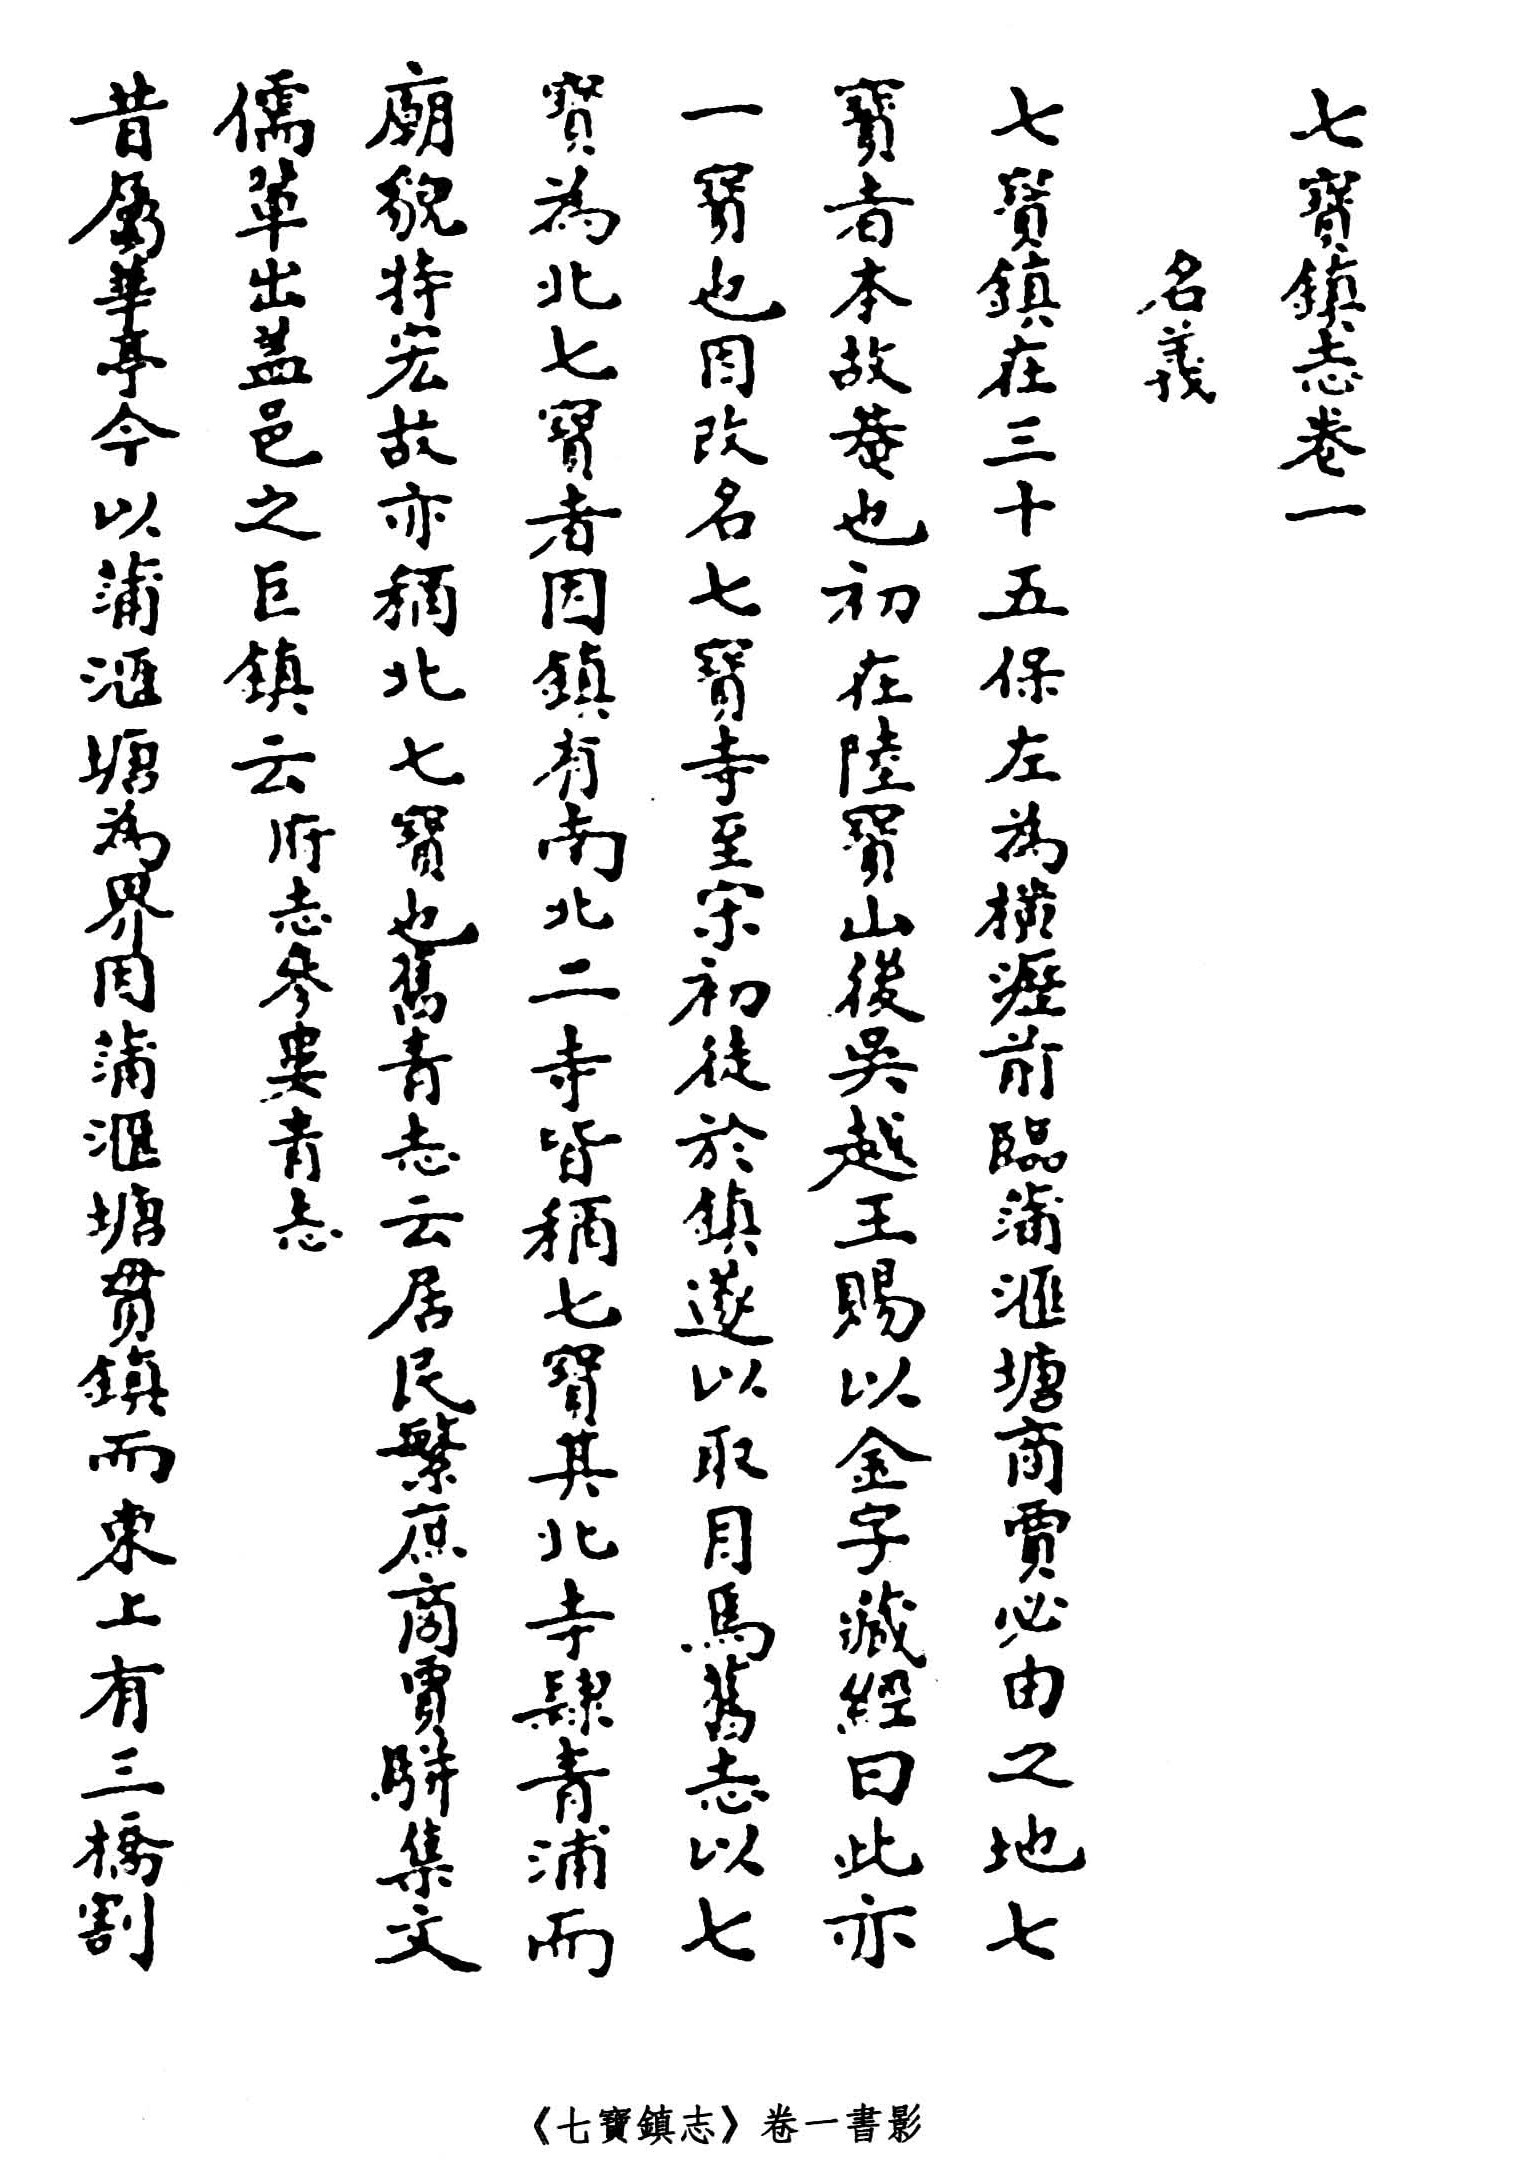 七寳鎮志卷一
名義
七寳鎮在三十五保左為橫瀝前臨蒲滙塘商賈必由之地七
寳者本故菴也初在陸寳山後吳越王賜以金字藏經曰此亦
一寳也因改名七寳寺至宋初徒於鎮遂以取目焉舊志以七
寳為北七寳者因鎮有南北二寺皆稱七寳其北寺肄青浦而
廟貌特宏故亦稱北七寳也舊青志云居民繁庶商賈駢集文
儒軰出盖邑之巨鎮云府志參婁青志
昔屬華亭今以蒲滙塘為界因蒲滙塘貫鎮而東上有三橋割
《七寶鎮志》卷一書影